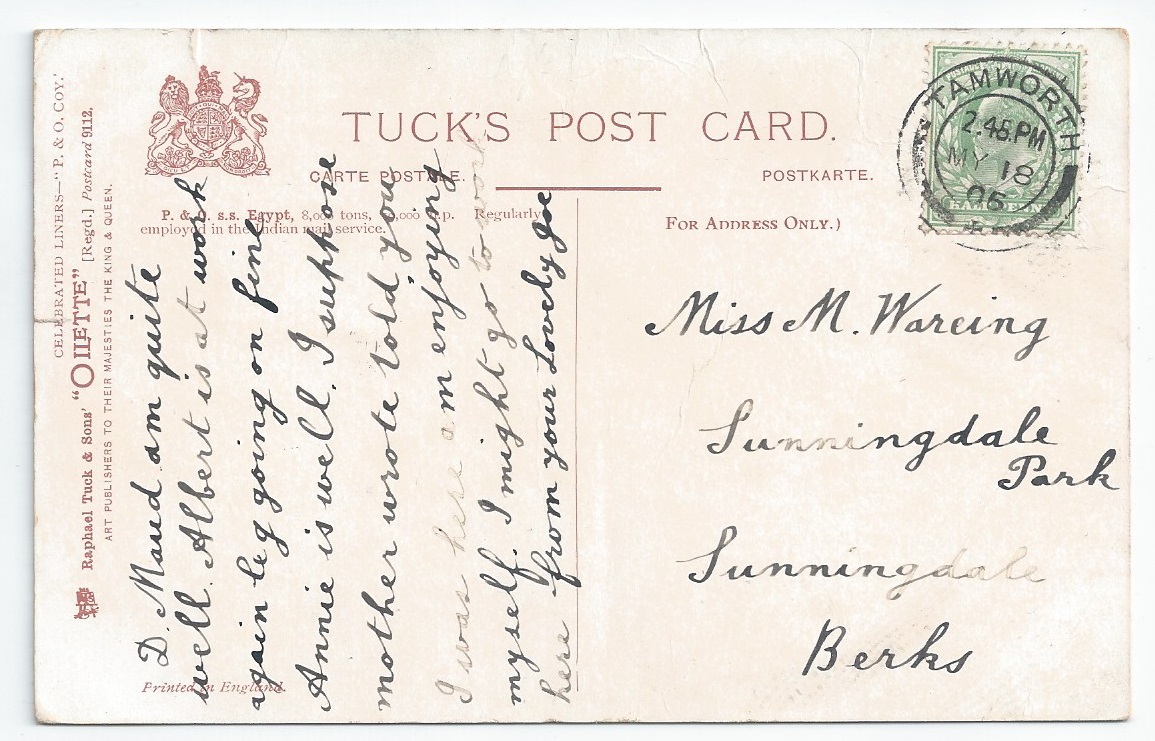 CELEBRATED LINERS—"P. & O. COY."
Raphael Tuck & Sons' "OILETTE" [Regd.] Postcard 9112.
ART PUBLISHERS TO THEIR MAJESTIES THE KING & QUEEN.
TUCK'S POST CARD.
CARTE POSTALE. POSTKARTE.
P. & O. s.s. Egypt, 8,000 tons, h.p. Regularly
employed in the Indian mail service.
FOR ADDRESS ONLY.)
TAMWORTH
2.48.PM
MY 18
06
D. Maud am quite
well. Albert is at work
again leg going on fine
Annie is well. I suppose
mother wrote told you
I was here am enjoying
myself. I might go to work
here from your Lovely Joe
Miss M. Wareing
Sunningdale
Park
Sunningdale
Berks
Printed in England.